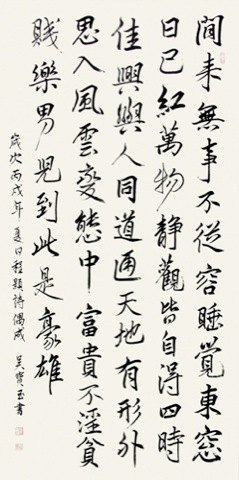 閒来無事不從容睡覺東窓
日已紅萬物静觀皆自得四時
佳興與人同道通天地有形外
思入風雲變態中富貴不淫貧
賤樂男兒到此是豪雄
歲次丙戌年夏日程顥詩偶成 吴寶玉書